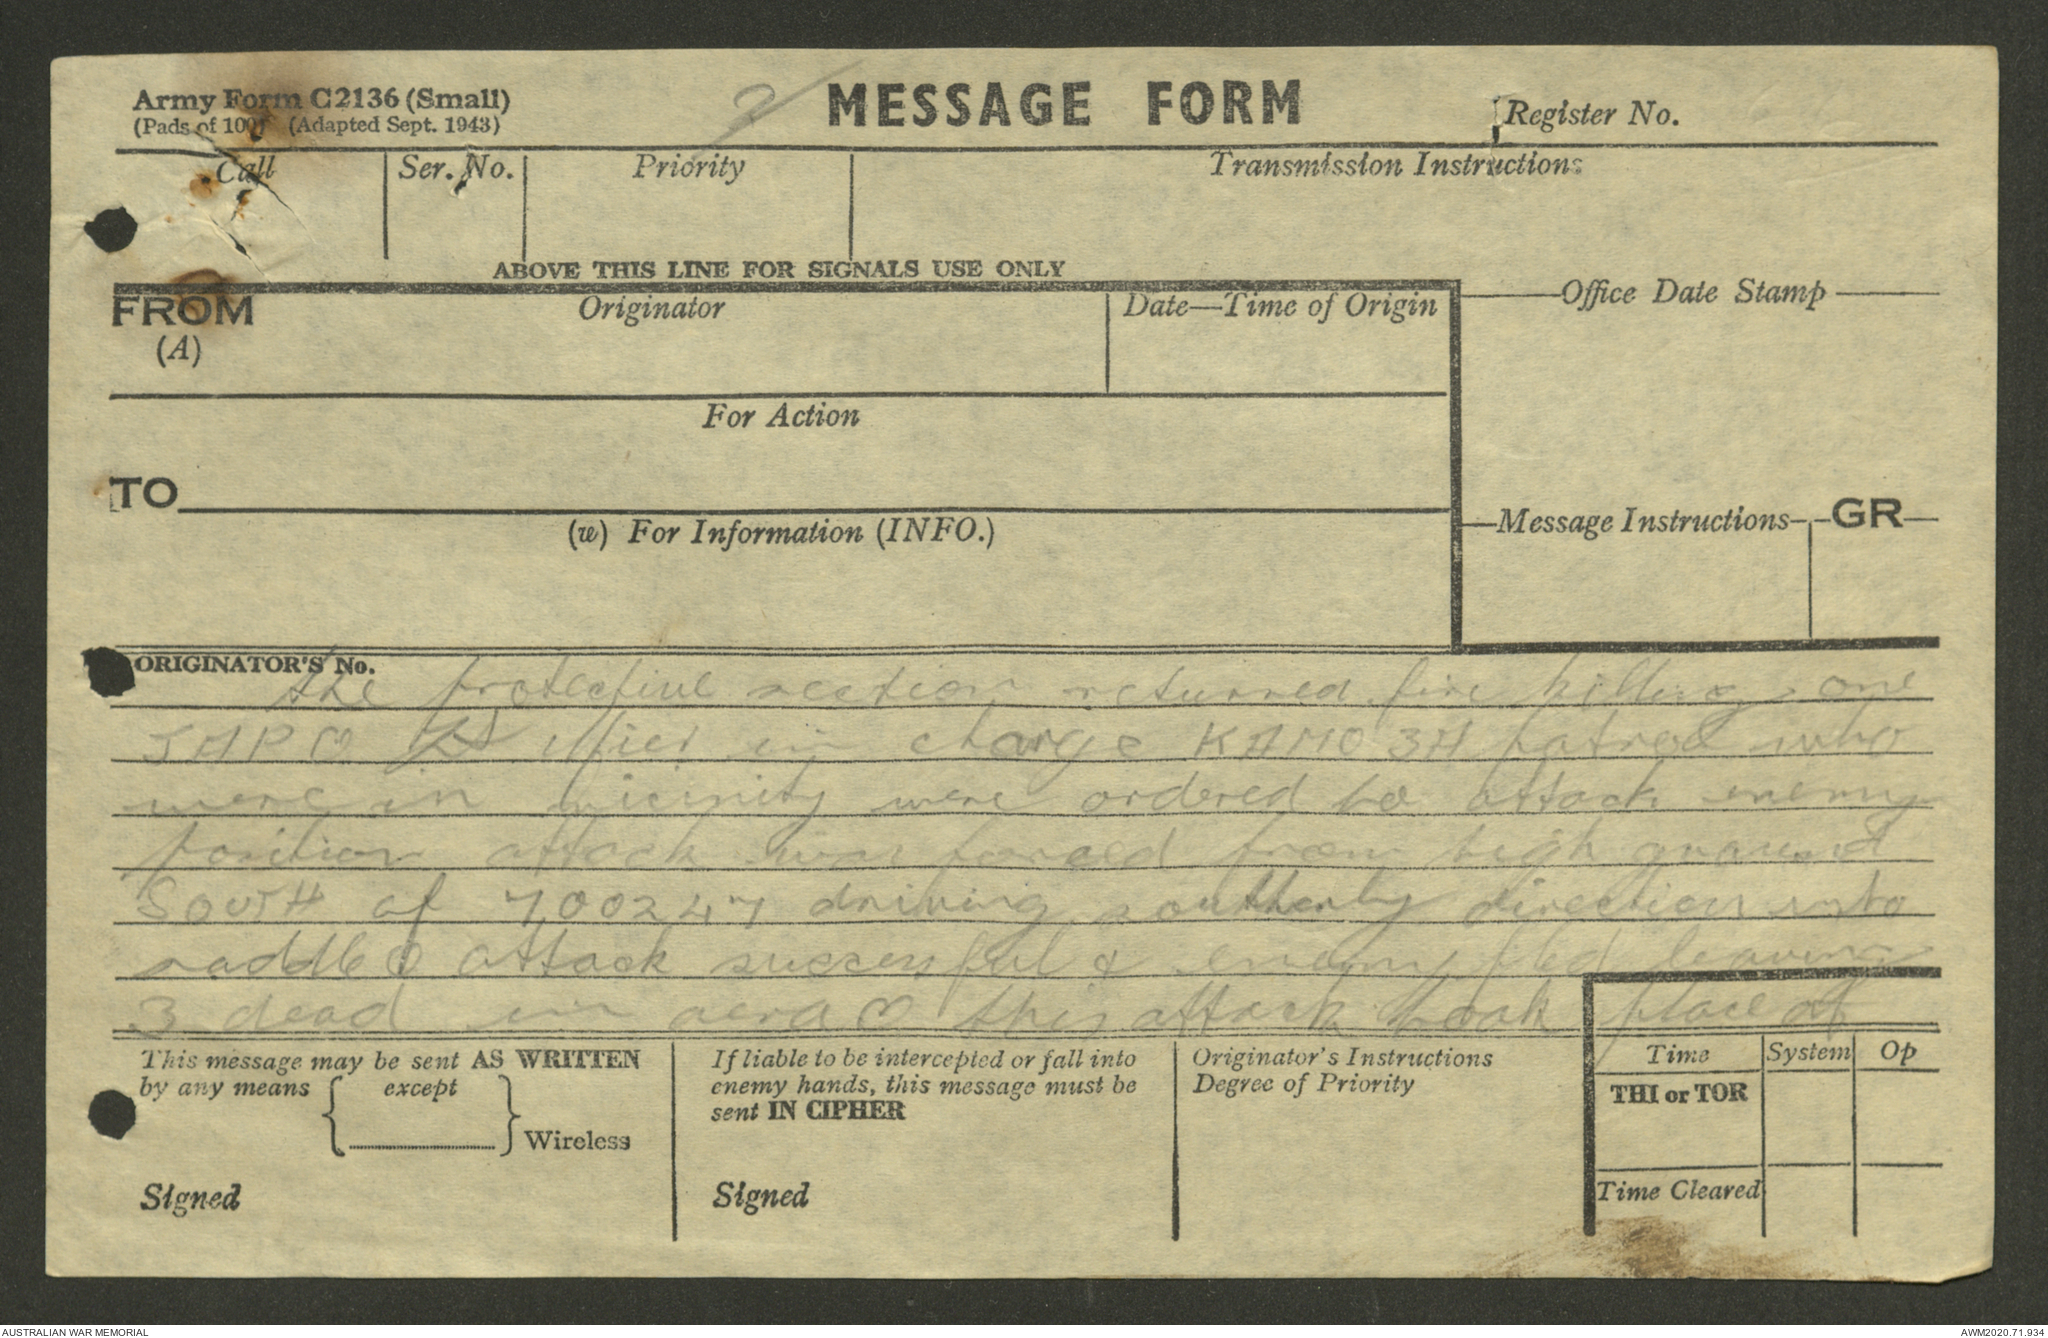 2/
MESSAGE FORM
Army Form C2136 (Small)
(Pads of 100) (Adapted Sept. 1943)
Register No.
Call
Ser. No.
Priority
Transmission Instructions
ABOVE THIS LINE FOR SIGNALS USE ONLY
FROM
(A)
Originator
Date—Time of Origin
Office Date Stamp
For Action
TO
(w) For Information (INFO.)
Message Instructions
GR
ORIGINATOR'S No.
the protective section returned fire killing one
JAP O in charge KAMO 3A patrol who
were in vicinity were ordered to attack enemy
position attack was forced from high ground
SOUTH of 700247 driving southerly direction into
saddle O attack successful & enemy fled leaving
3 dead in aera O this attack took place at
This message may be sent AS WRITTEN
by any means
except
Wireless
Signed
If liable to be intercepted or fall into
enemy hands, this message must be
sent IN CIPHER
Signed
Originator's Instructions
Degree of Priority
Time
System
Op
THI or TOR
Time Cleared
AUSTRALIAN WAR MEMORIAL
AWM2020.71.934